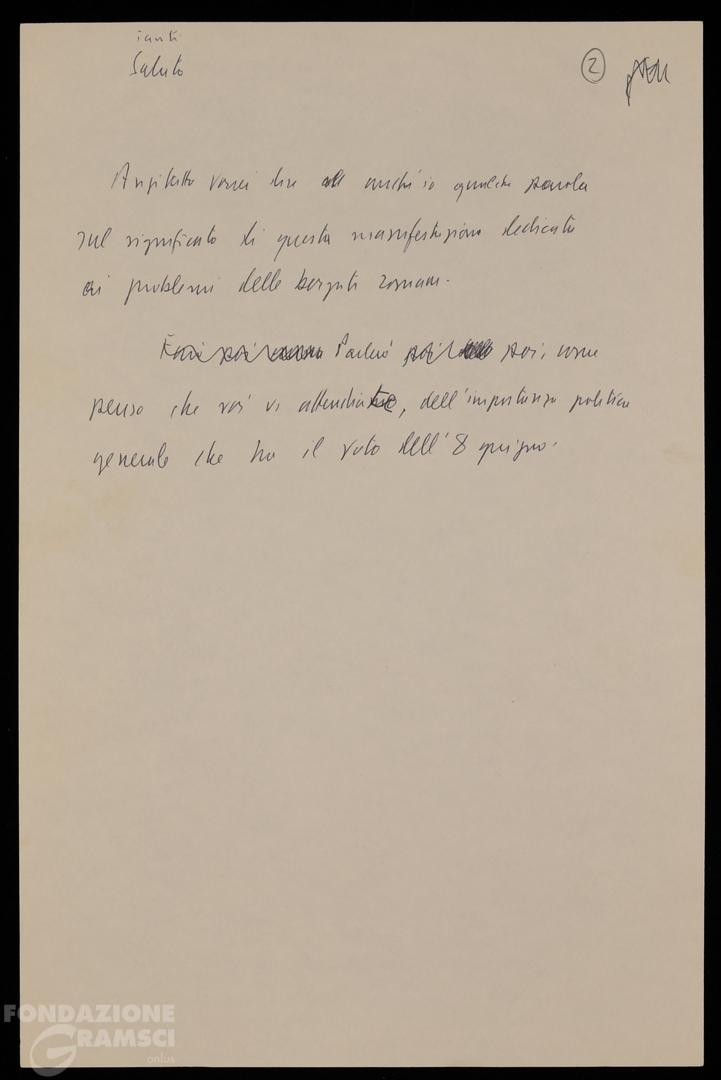 Saluto
2
Anzitutto vorrei dire anch'io qualche parola
sul significato di questa manifestazione dedicata
ai problemi delle borgate romane.
Parlerò poi, come
penso che voi vi attendiate, dell'importanza politica
generale che ha il voto dell'8 giugno.
FONDAZIONE
GRAMSCI
onlus